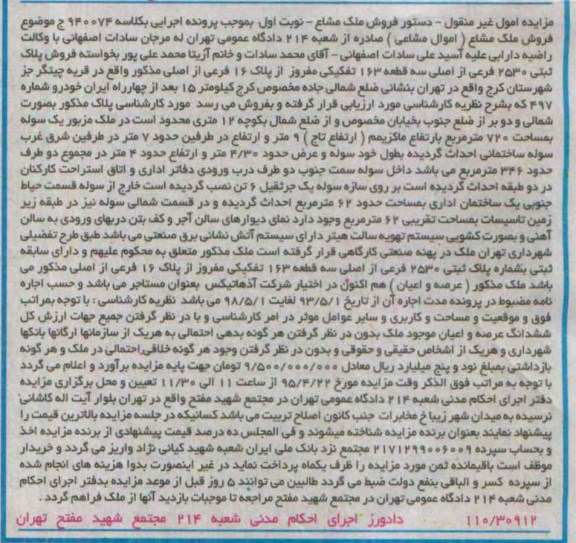 مزایده اموال غیر منقول - دستور فروش ملک مشاع - نوبت اول بموجب پرونده اجرایی بکلاسه ۹۴۰۰۷۴ ج موضوع
فروش ملک مشاع ( اموال مشاعی ) صادره از شعبه ۲۱۴ دادگاه عمومی تهران له مرجان سادات اصفهانی با وکالت
راضیه دارابی علیه آسید علی سادات اصفهانی - آقای محمد سادات و خانم آزیتا محمد علی پور بخواسته فروش پلاک
ثبتی ۲۵۳۰ فرعی از اصلی سه قطعه ۱۶۳ تفکیکی مفروز از پلاک ۱۶ فرعی از اصلی مذکور واقع در قریه چیتگر جز
شهرستان کرج واقع در تهران بنشانی ضلع شمالی جاده مخصوص کرج کیلومتر ۱۵ بعد از چهارراه ایران خودرو شماره
۴۹۷ که بشرح نظریه کارشناسی مورد ارزیابی قرار گرفته و بفروش می رسد مورد کارشناسی پلاک مذکور بصورت
شمالی و دو بر از ضلع جنوب بخیابان مخصوص و از ضلع شمال بکوچه ۱۲ متری محدود است در ملک مزبور یک سوله
بمساحت ۷۲۰ مترمربع بارتفاع ماکزیمم ( ارتفاع تاج ) ۹ متر و ارتفاع در طرفین حدود ۷ متر در طرفین شرق غرب
سوله ساختمانی احداث گردیده بطول خود سوله و عرض حدود ۴/۳۰ متر و ارتفاع حدود ۴ متر در مجموع دو طرف
حدود ۳۴۶ مترمربع می باشد داخل سوله سمت جنوب دو طرف درب ورودی دفاتر اداری و اتاق استراحت کارکنان
در دو طبقه احداث گردیده است بر روی سازه سوله یک جرثقیل ۶ تن نصب گردیده است خارج از سوله قسمت حیاط
جنوبی یک ساختمان اداری بمساحت حدود ۶۲ مترمربع احداث گردیده و در قسمت شمالی سوله نیز در طبقه زیر
زمین تاسیسات بمساحت تقریبی ۶۲ مترمربع وجود دارد نمای دیوارهای سالن آجر و کف بتن دربهای ورودی به سالن
آهنی و بصورت کشویی سیستم تهویه سالت هیتر دارای سیستم آتش نشانی برق صنعتی می باشد طبق طرح تفضیلی
شهرداری تهران ملک در پهنه صنعتی کارگاهی قرار گرفته است ملک مذکور متعلق به محکوم علیهم و دارای سابقه
ثبتی بشماره پلاک ثبتی ۲۵۳۰ فرعی از اصلی سه قطعه ۱۶۳ تفکیکی مفروز از پلاک ۱۶ فرعی از اصلی مذکور می
باشد ملک مذکور ( عرصه و اعیان ) هم اکنون در اختیار شرکت آذهاتیکس بعنوان مستاجر می باشد و حسب اجاره
نامه مضبوط در پرونده مدت اجاره آن از تاریخ ۹۳/۵/۱ لغایت ۹۸/۵/۱ می باشد نظریه کارشناسی : با توجه بمراتب
فوق و موقعیت و مساحت و کاربری و سایر عوامل موثر در امر کارشناسی و با در نظر گرفتن جمیع جهات ارزش کل
ششدانگ عرصه و اعیان موجود ملک بدون در نظر گرفتن هر گونه بدهی احتمالی به هریک از سازمانها ارگانها بانکها
شهرداری و هریک از اشخاص حقیقی و حقوقی و بدون در نظر گرفتن وجود هر گونه خلافی احتمالی در ملک و هر گونه
بازداشتی بمبلغ نود و پنج میلیارد ریال معادل ۹/۵۰۰/۰۰۰/۰۰۰ تومان جهت پایه مزایده برآورد و اعلام می گردد
با توجه به مراتب فوق الذکر وقت مزایده مورخ ۹۵/۴/۲۲ از ساعت ۱۱ الی ۱۱/۳۰ تعیین و محل برگزاری مزایده
دفتر اجرای احکام مدنی شعبه ۲۱۴ دادگاه عمومی تهران در مجتمع شهید مفتح واقع در تهران بلوار آیت اله کاشانی:
نرسیده به میدان شهر زیبا خ مخابرات جنب کانون اصلاح تربیت می باشد کسانیکه در جلسه مزایده بالاترین قیمت را
پیشنهاد نمایند بعنوان برنده مزایده شناخته میشوند و فی المجلس ده درصد قیمت پیشنهادی از برنده مزایده اخذ
و بحساب سپرده ۲۱۷۱۲۹۹۰۰۶۰۰۹ مجتمع نزد بانک ملی ایران شعبه شهید کیانی نژاد واریز می گردد و خریدار
موظف است باقیمانده ثمن مورد مزایده را ظرف یکماه پرداخت نماید در غیر اینصورت بدوا هزینه های انجام شده
از سپرده کسر و الباقی بنفع دولت ضبط می گردد طالبین می توانند ۵ روز قبل از موعد مزایده بدفتر اجرای احکام
مدنی شعبه ۲۱۴ دادگاه عمومی تهران در مجتمع شهید مفتح مراجعه تا موجبات بازدید آنها از ملک فراهم گردد .
۱۱۰/۳۰۹۱۲ دادورز اجرای احکام مدنی شعبه ۲۱۴ مجتمع شهید مفتح تهران